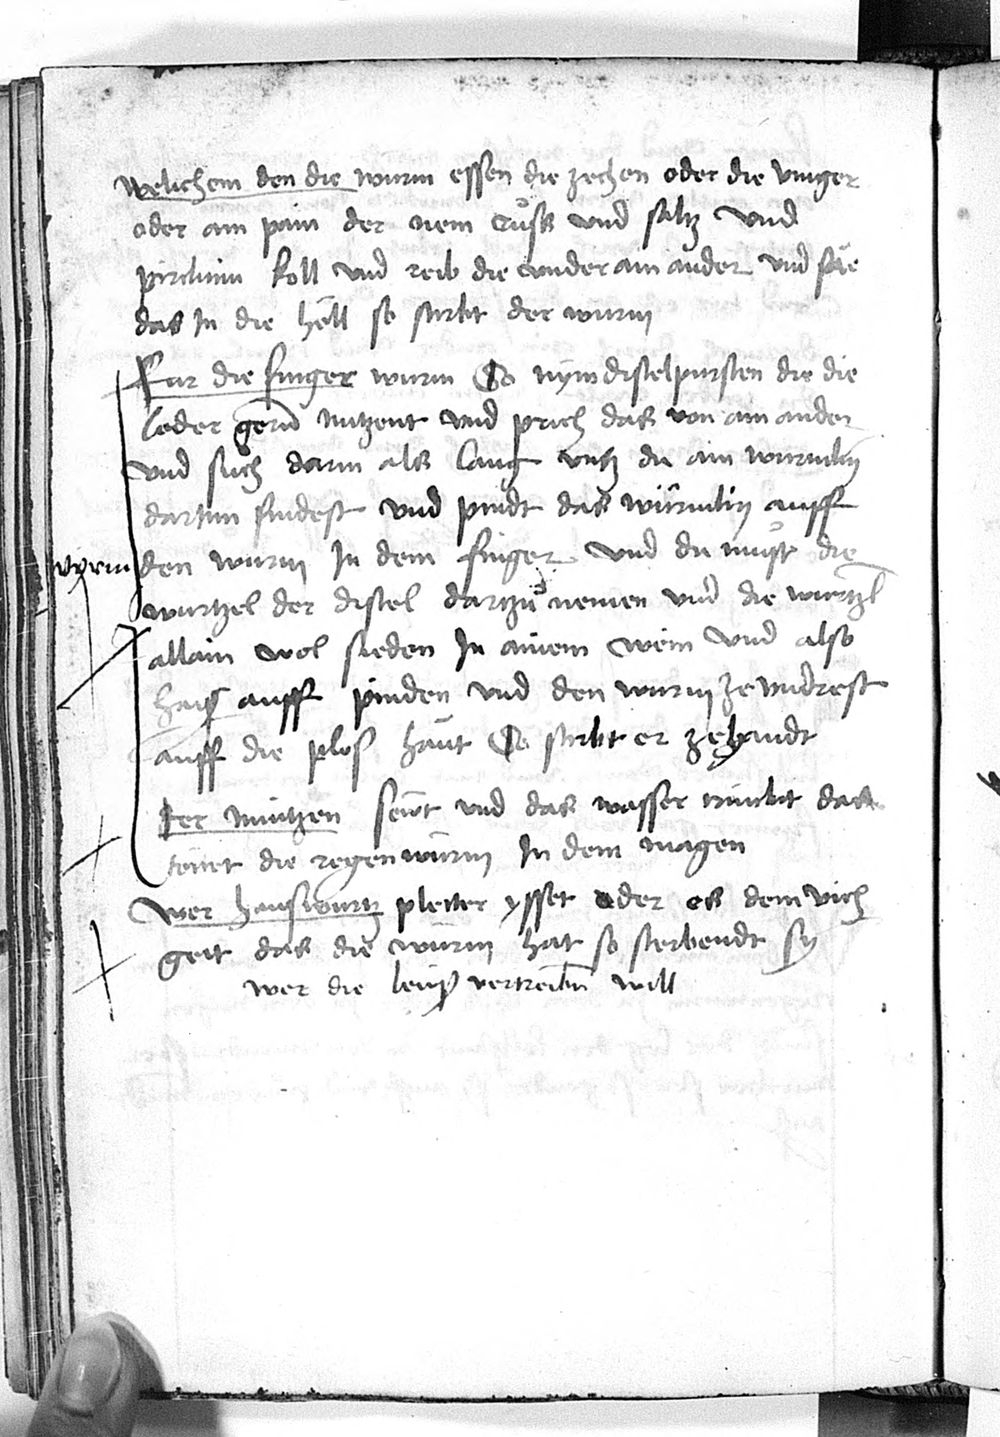 Welichem den die wurm essen die zechen oder die vinger
oder am pain der nem růss vnd saltz vnd
pirchinn koll vnd reib die vnder ain ander vnd säe
das In die höll so stirbt der wurm
Fur die finger wurm So nym distelpursten die die
leder gern nutzent vnd prich das von ain anden
vnd sůch darin als lang vntz du ain wurmlin
darjnn findest vnd pindt das würmlin auff
wurm
den wurm In dem finger vnd du must die
wurtzel der distel dartzů nemen vnd die wurtzl
allain wol sieden In ainem wein vnd also
haiß auff pinden vnd den wurm ze vndrest
auff die plos haut So stirbt er zehandt
Der müntzen sewt vnd das wasser trinckt das
töttet die regenwürm In dem magen
Wer hauswurtz pletter ysset oder es dem vich
geit das die würm hat so sterbendt sy
wer die leuß vertreibn will